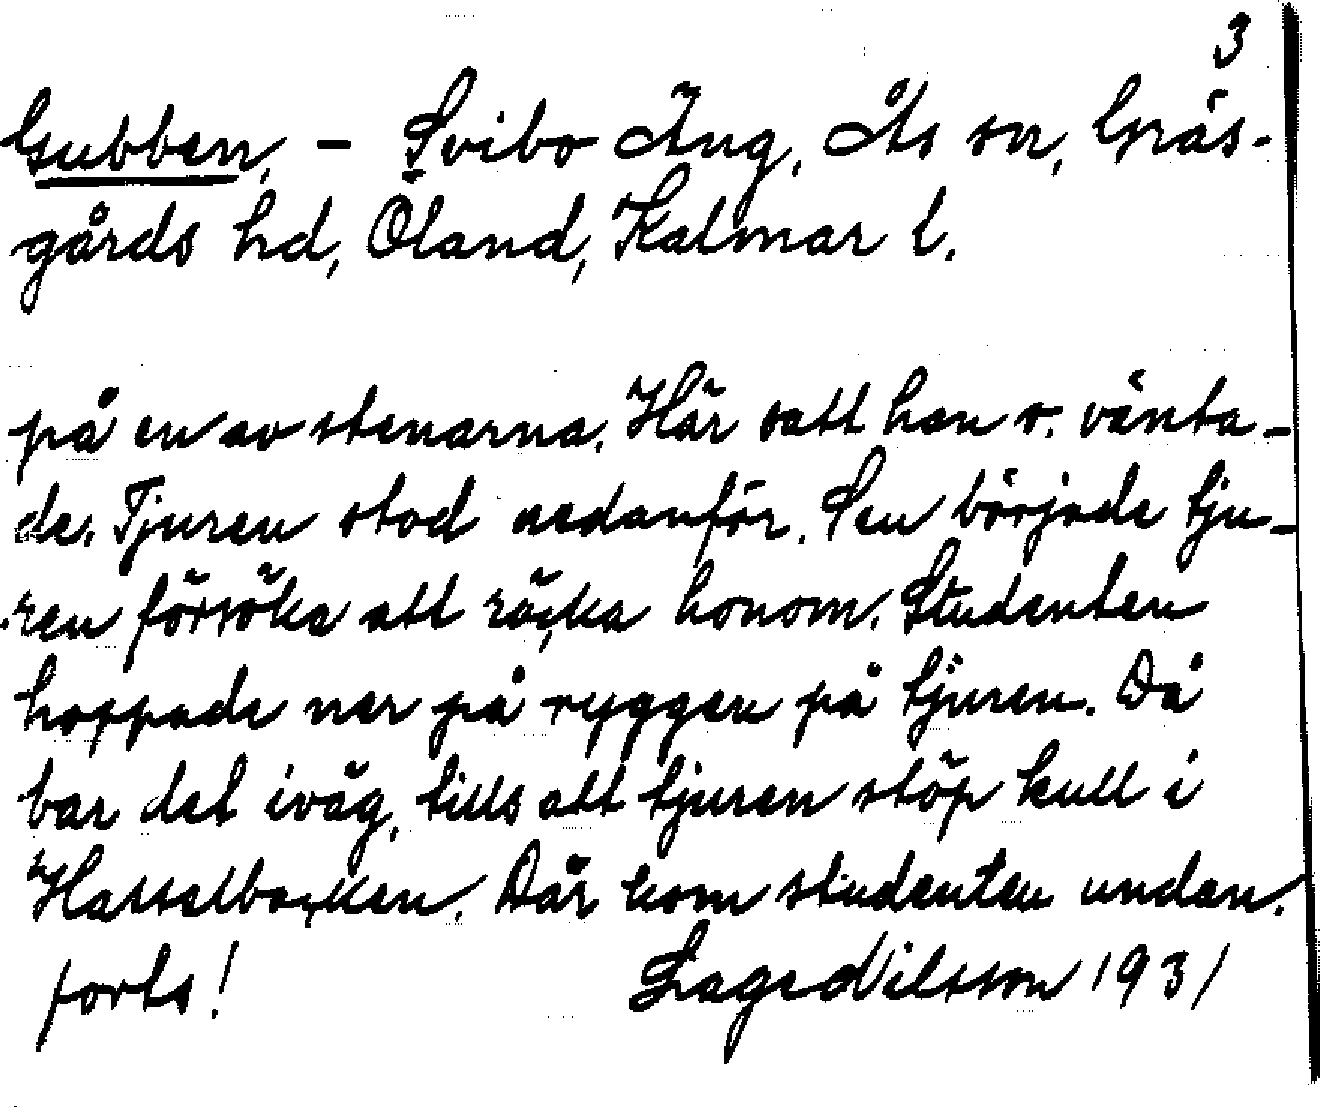 3
Gubben, - Svibo Äng, Ås sn, Gräs-
gårds hd, Öland, Kalmar l.
på en av stenarna. Här satt han o. vänta-
de. Tjuren stod nedanför. Sen började tju-
ren försöka att räcka honom. Studenten
hoppade ner på ryggen på tjuren. Då
bar det iväg, tills att tjuren stöp kull i
Hasselbacken. Där kom studenten undan.
forts! Lage Nilsson 1931